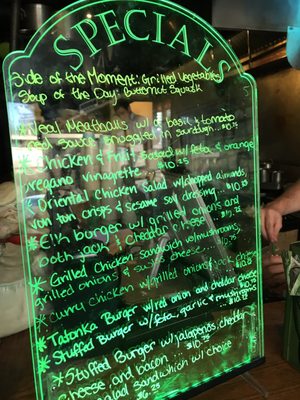 SPECIALS
Side of the Moment: Grilled Vegetables
Soup of the Day: Butternut Squash
*Veal Meatballs w/ a basil & tomato
red sauce snuggled in sourdough...
*Chicken & Fruit Salad w/ feta & orange
oregano vinaigrette $10.25
*Oriental Chicken Salad w/ chopped almonds,
won ton crisps & sesame soy dressing...
*Elk burger w/ grilled onions and
jack & cheddar cheese
*Grilled Chicken Sandwich w/ mushrooms,
grilled onions & swiss cheese
*Curry chicken w/ grilled onions & jack cheese
*Tatonka Burger w/ red onion and cheddar cheese
*Stuffed Burger w/ feta, garlic & mushrooms
*Stuffed Burger w/ jalapenos, cheddar
cheese and bacon ... 10.75
Salad Sandwhich w/ choice
$6.25